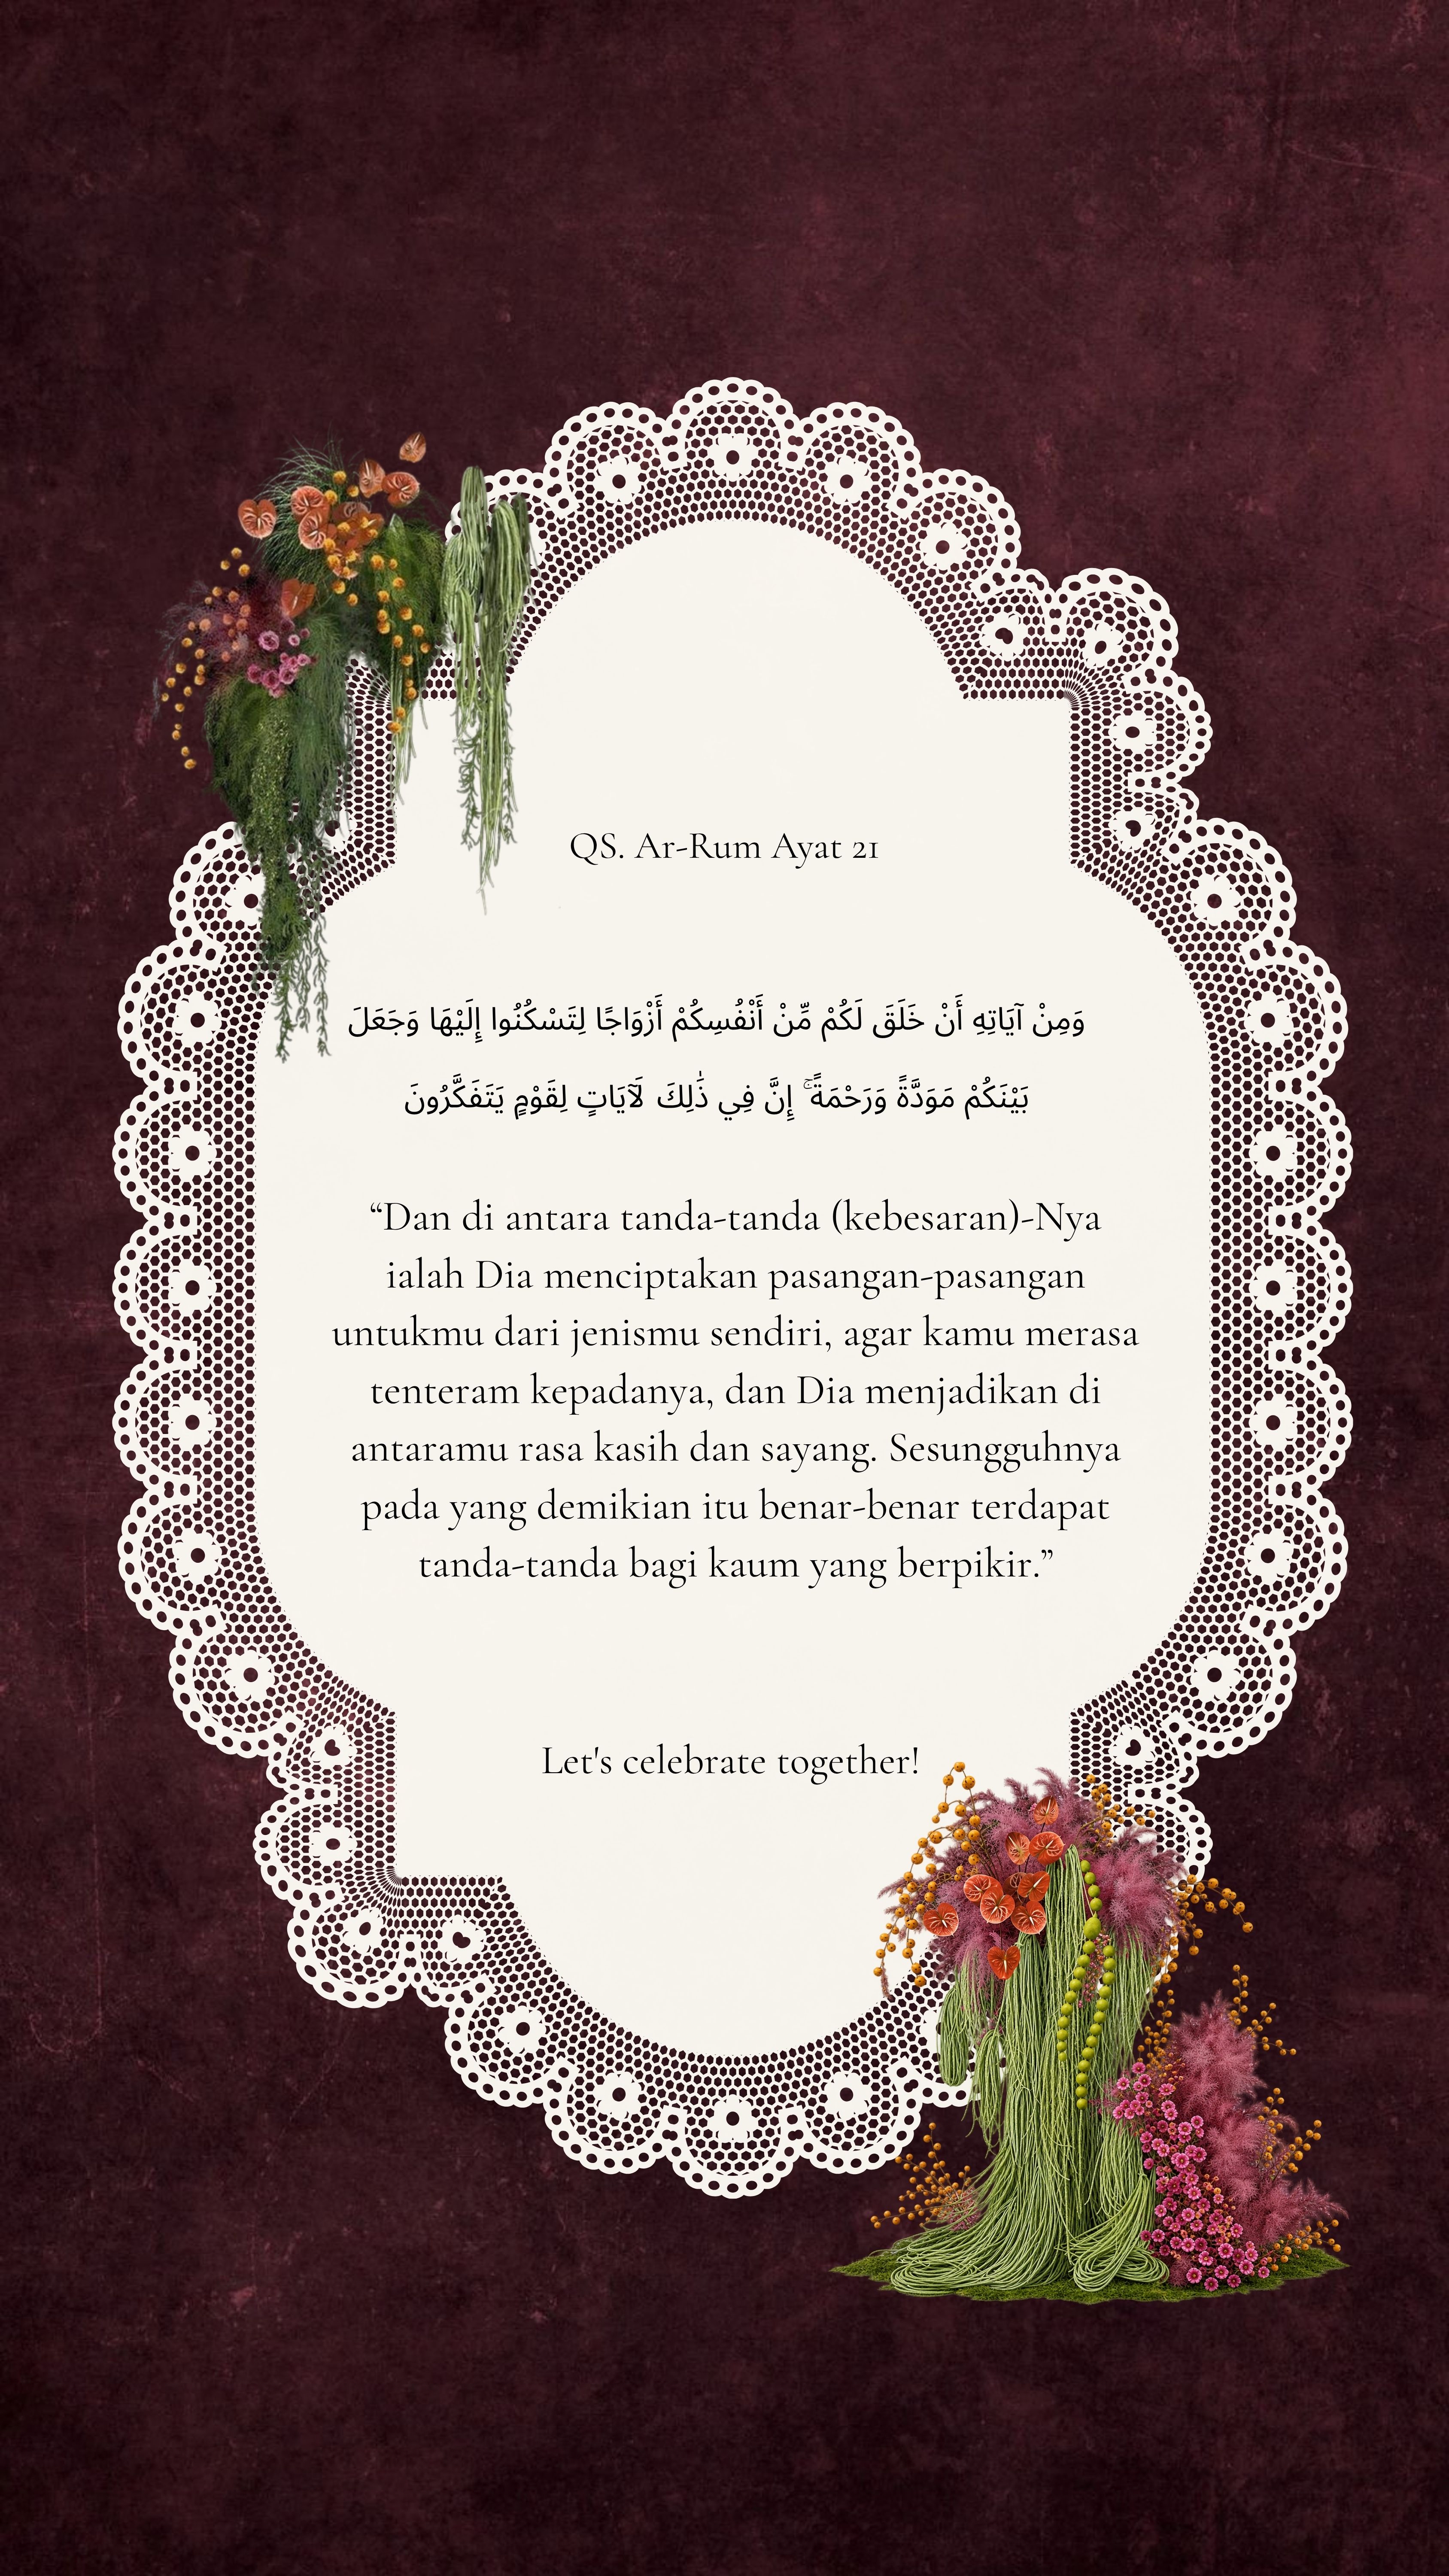 QS. Ar-Rum Ayat 21
وَمِنْ آيَاتِهِ أَنْ خَلَقَ لَكُمْ مِّنْ أَنْفُسِكُمْ أَزْوَاجًا لِتَسْكُنُوا إِلَيْهَا وَجَعَلَ
بَيْنَكُمْ مَوَدَّةً وَرَحْمَةً ۚ إِنَّ فِي ذَٰلِكَ لَآيَاتٍ لِقَوْمٍ يَتَفَكَّرُونَ
“Dan di antara tanda-tanda (kebesaran)-Nya
ialah Dia menciptakan pasangan-pasangan
untukmu dari jenismu sendiri, agar kamu merasa
tenteram kepadanya, dan Dia menjadikan di
antaramu rasa kasih dan sayang. Sesungguhnya
pada yang demikian itu benar-benar terdapat
tanda-tanda bagi kaum yang berpikir.”
Let's celebrate together!